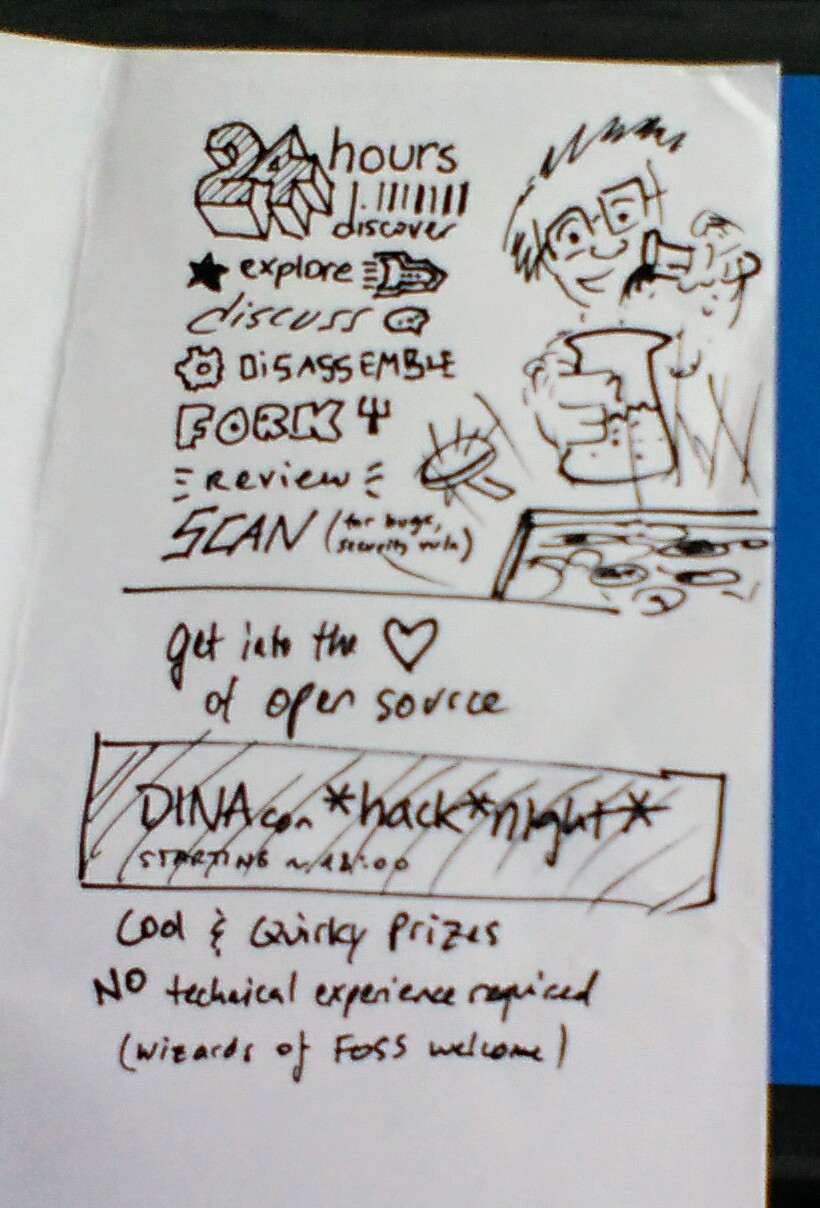 24 hours
discover
explore
discuss
DiSASSEMBLE
FORK
Review
SCAN (for bugs,
security vuln)
get into the ♡
of open source
DINAcon *hack*night*
STARTING ~ 18:00
Cool & Quirky Prizes
NO technical experience required
(wizards of FOSS welcome)